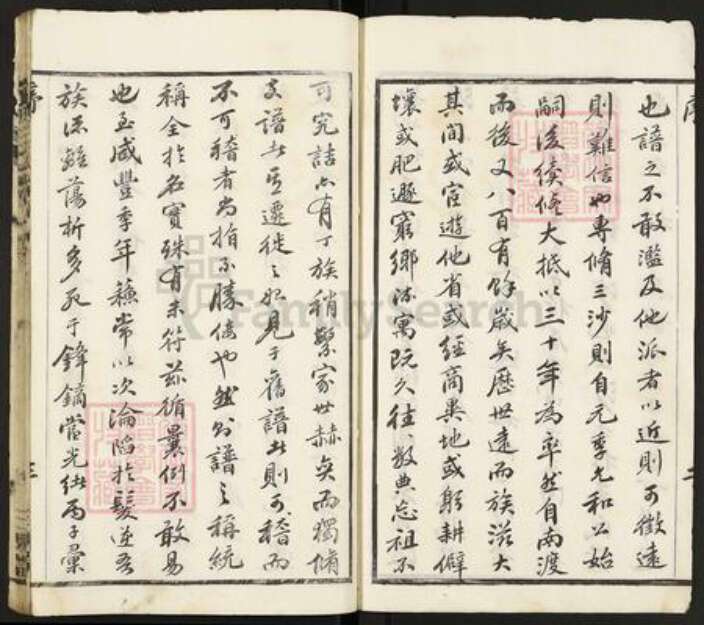 也譜之不敢濫及他派者以近則可徵遠
則難信也專脩三沙則自元季允和公始
嗣後續修大抵以三十年為率然自南渡
而後又八百有餘歲矣歷世遠而族滋大
其間或宦遊他省或經商異地或躬耕僻
壤或肥遯窮鄉流寓既久往往數典忘祖不
可究詰亦有丁族稍繁家世赫奕而獨脩
支譜者其遷徙之初見于舊譜者則可稽而
不可稽者尚指不勝僂也然則譜之稱統
稱全於名實殊有未符茲循曩例不敢易
也至咸豐季年蘇常以次淪陷於髮逆吾
族流離蕩析多死于鋒鏑當光緒丙子彙
序
二
三
FamilySearch